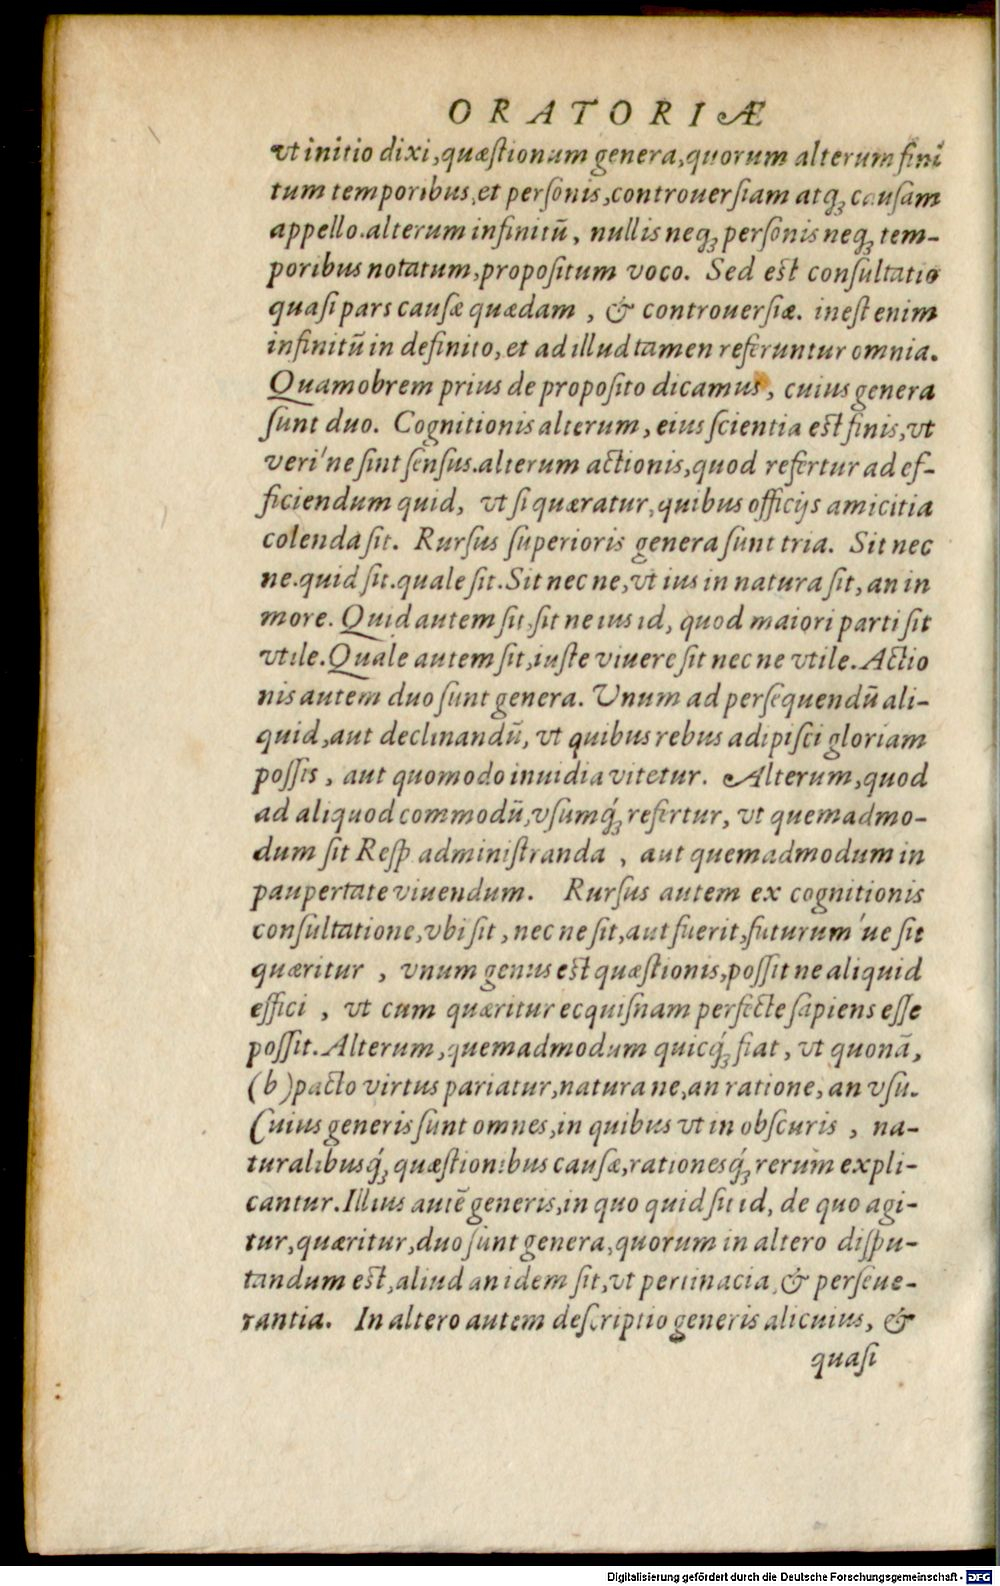 ORATORIÆ
vt initio dixi, quæſtionum genera, quorum alterum fini
tum temporibus, et perſonis, controuerſiam atq́ꝫ cauſam
appello. alterum infinitũ, nullis neqꝫ perſonis neqꝫ tem-
poribus notatum, propoſitum voco. Sed eſt conſultatio
quaſi pars cauſæ quædam, & controuerſiæ. ineſt enim
infinitũ in definito, et ad illud tamen referuntur omnia.
Quamobrem prius de propoſito dicamus, cuius genera
ſunt duo. Cognitionis alterum, eius ſcientia eſt finis, vt
veri'ne ſint ſenſus. alterum actionis, quod refertur ad ef-
ficiendum quid, vt ſi quæratur, quibus officijs amicitia
colenda ſit. Rurſus ſuperioris genera ſunt tria. Sit nec
ne. quid ſit. quale ſit. Sit nec ne, vt ius in natura ſit, an in
more. Quid autem ſit, ſit ne ius id, quod maiori parti ſit
vtile. Quale autem ſit, iuſte viuere ſit nec ne vtile. Actio
nis autem duo ſunt genera. Unum ad perſequendũ ali-
quid, aut declinandũ, vt quibus rebus adipiſci gloriam
poſſis, aut quomodo inuidia vitetur. Alterum, quod
ad aliquod commodũ, vſumq́ꝫ refertur, vt quemadmo-
dum ſit Reſp adminiſtranda, aut quemadmodum in
paupertate viuendum. Rurſus autem ex cognitionis
conſultatione, vbi ſit, nec ne ſit, aut fuerit, futurum'ue ſit
quæritur, vnum genus eſt quæſtionis, poſſit ne aliquid
effici, vt cum quæritur ecquiſnam perfecte ſapiens eſſe
poſſit. Alterum, quemadmodum quicq́ꝫ fiat, vt quonã,
(b) pacto virtus pariatur, natura ne, an ratione, an vſu.
Cuius generis ſunt omnes, in quibus vt in obſcuris, na-
turalibusq́ꝫ quæſtionibus cauſæ, rationesq́ꝫ rerum expli-
cantur. Illius autẽ generis, in quo quid ſit id, de quo agi-
tur, quæritur, duo ſunt genera, quorum in altero diſpu-
tandum eſt, aliud an idem ſit, vt pertinacia, & perſeue-
rantia. In altero autem deſcriptio generis alicuius, &
quaſi
Digitalisierung gefördert durch die Deutsche Forschungsgemeinschaft - DFG